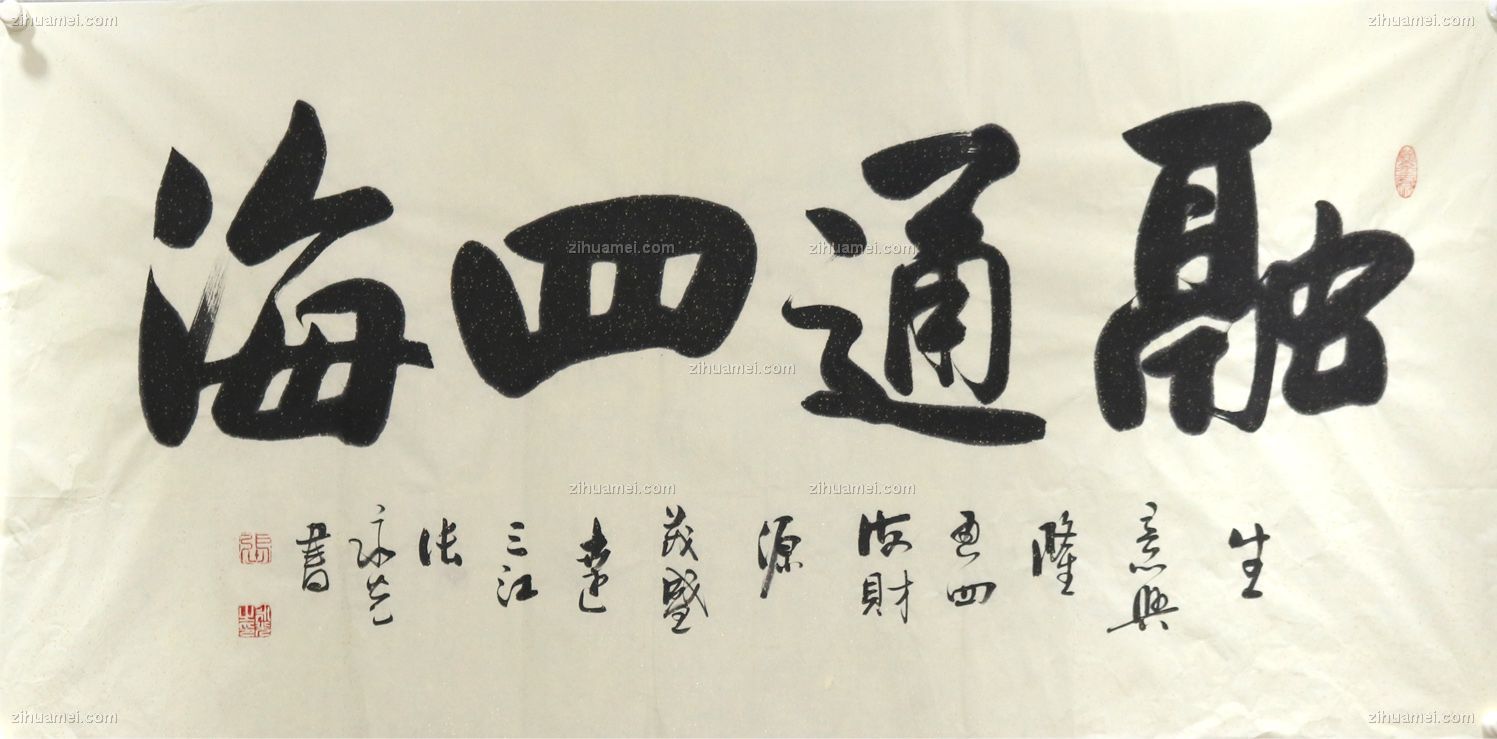 zihuamei.com
zihuamei.com
融通四海
zihuamei.com
zihuamei.com
zihuamei.com
zihuamei.com
zihuamei.com
生
意興
隆
通四
海財
源
茂盛
達
三江
张
書
張
zihuamei.com
zihuamei.com